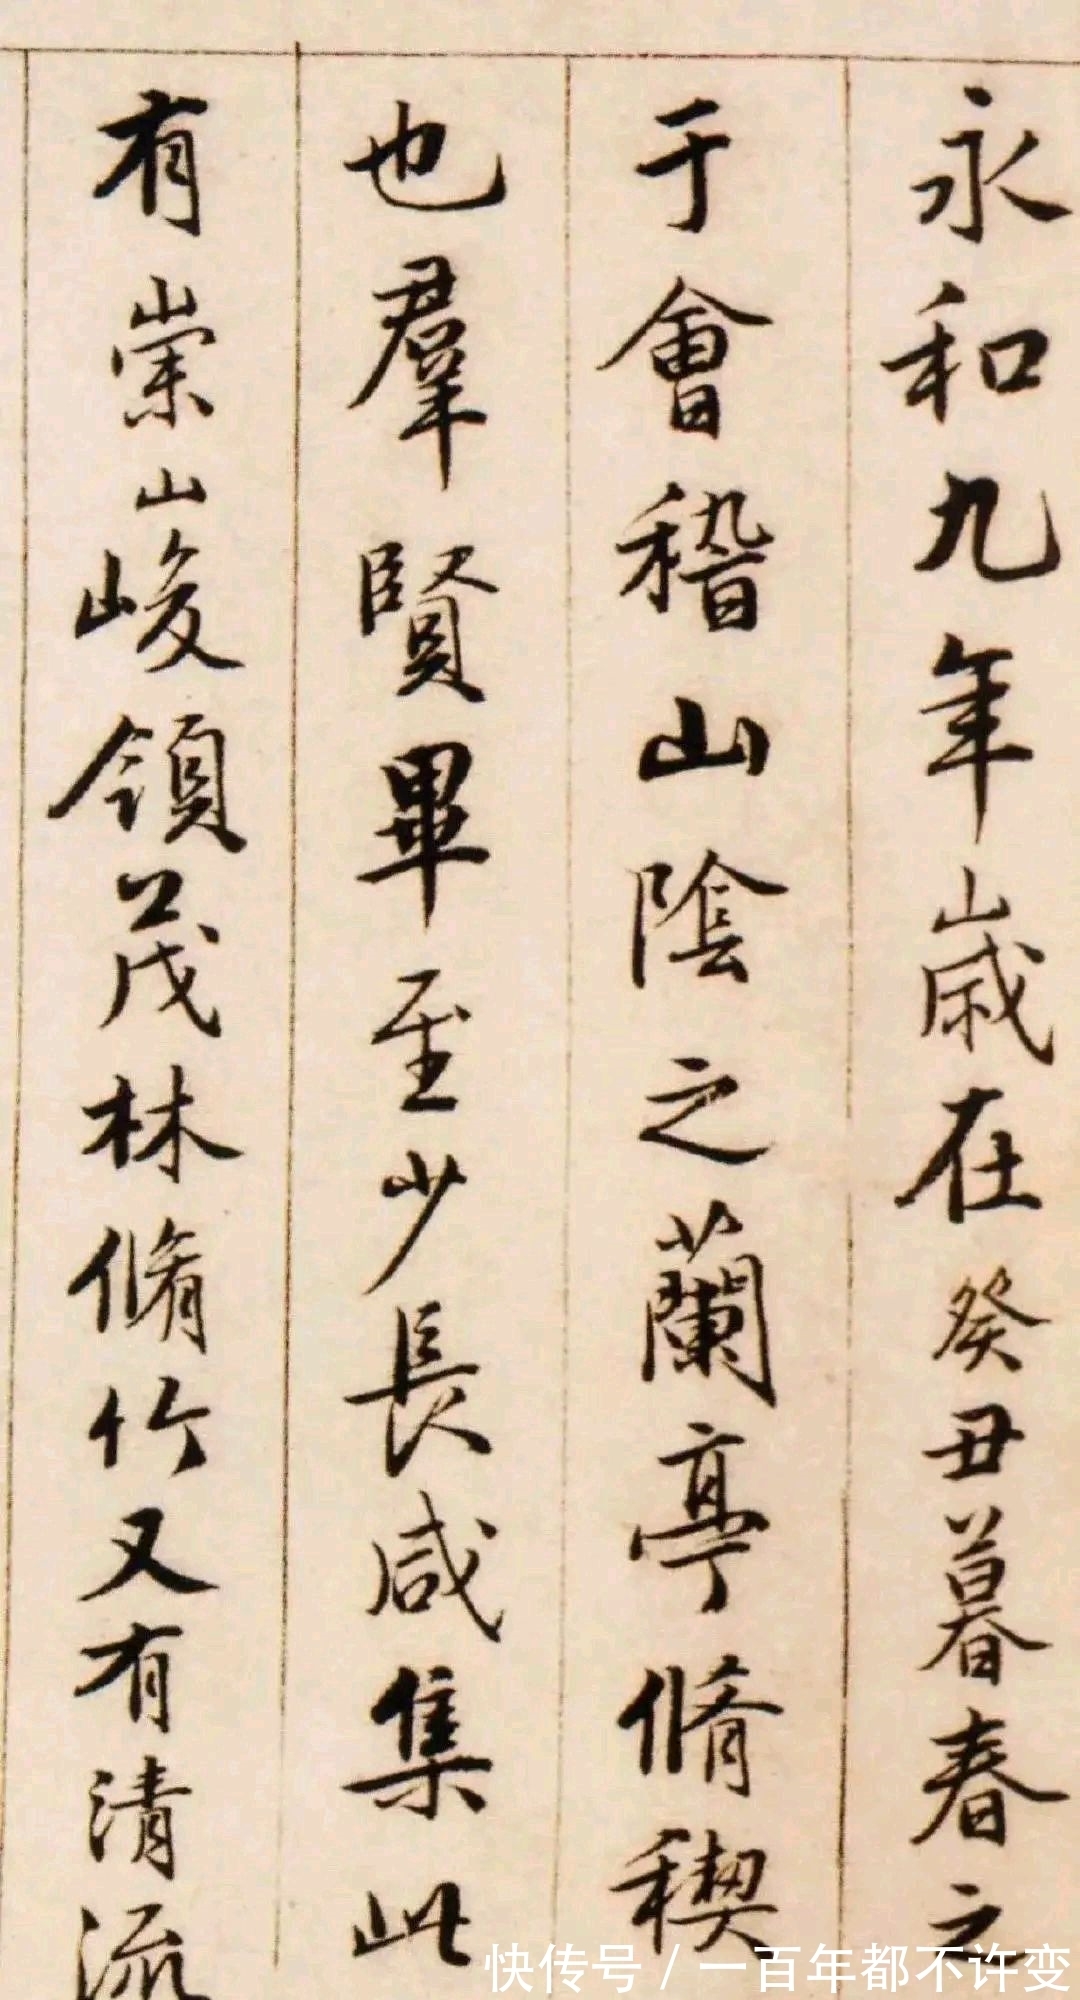 永和九年歲在癸丑暮春之
于會稽山陰之蘭亭脩稧
也羣賢畢至少長咸集此
有崇山峻領茂林脩竹又有清流
快传号/一百年都不许变